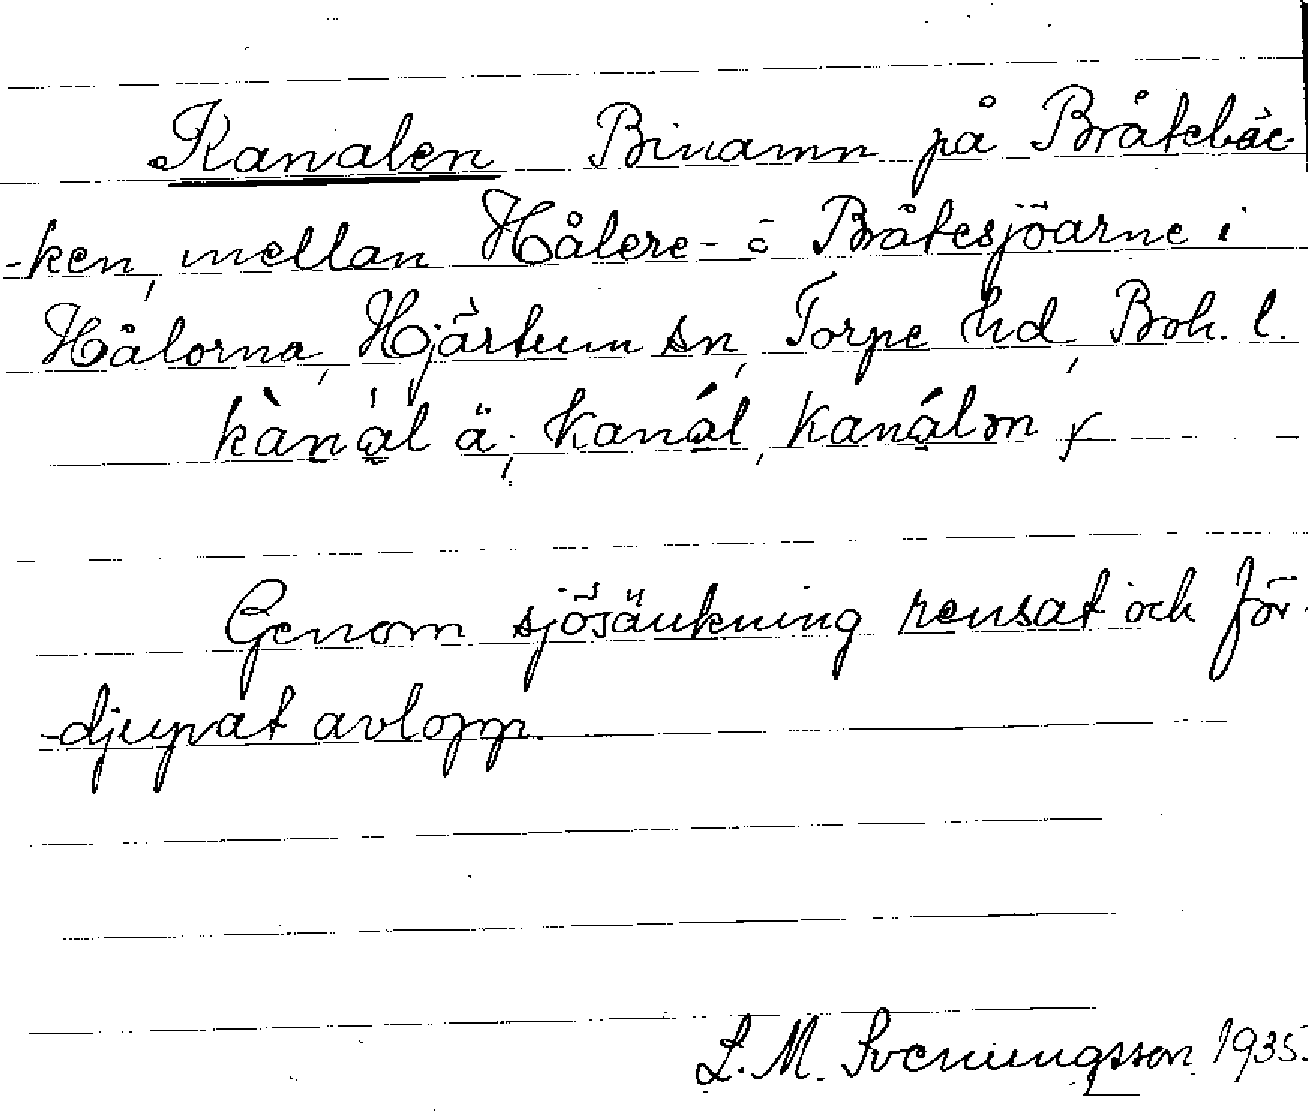 Kanalen Binamn på Bråtebäc
-ken, mellan Hålere- o Bråtesjöarne i
Hålorna, Hjärtum sn, Torpe hd, Boh. l.
kànál ä; kanál, kanálon
Genom sjösänkning rensat och för-
-djupat avlopp.
L. M. Svenungsson 1935.